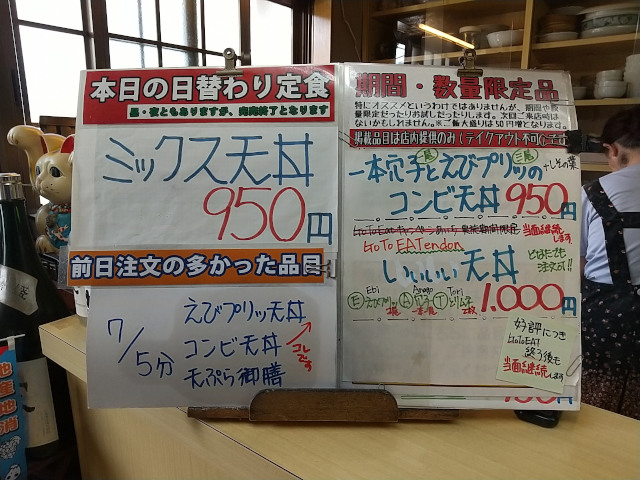 本日の日替わり定食
昼・夜ともありますが、完売終了となります
ミックス天丼
950円
前日注文の多かった品目
7/5分
えびプリッツ天丼
コンビ天丼
コレです
天ぷら御膳
期間・数量限定品
特にオススメというわけではありませんが、期間や数
量限定だったりお試しだったりします。次回ご来店時は
ないかもしれません。※ご飯大盛りは50円増となります。
掲載品目は店内提供のみ(テイクアウト不可)
一本穴子とえびプリッツの
コンビ天丼 950円
当面継続
します
GoTo EATendon
いいいい天丼
1.000円
Ebi Anago Tori
E A T
好評につき
GoToEAT
終了後も
当面継続します
地産地消